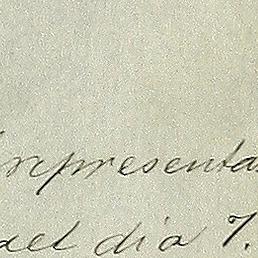 representa
del dia 7.